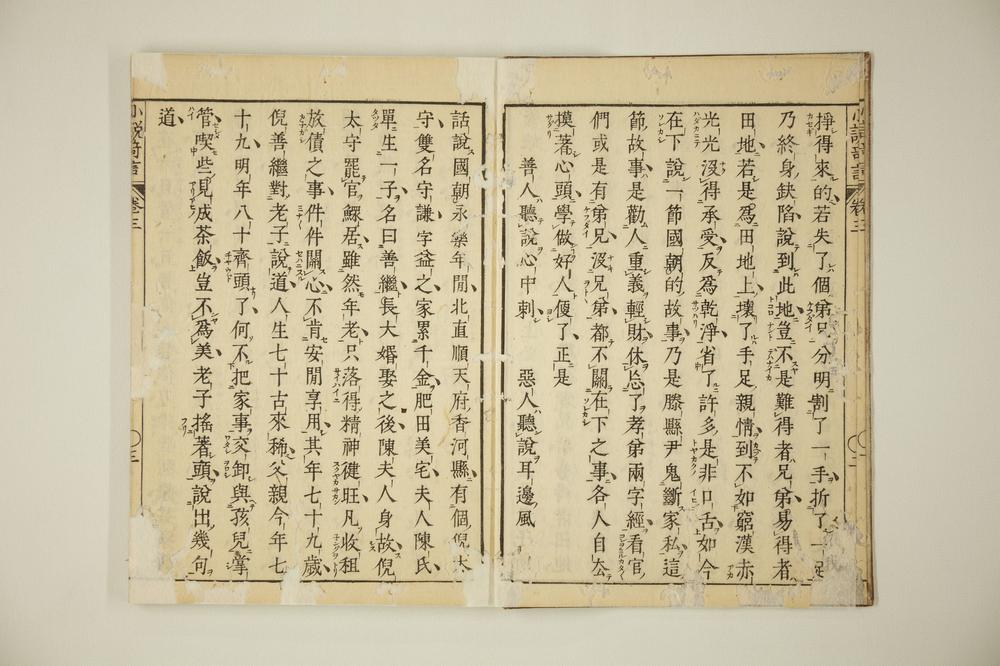 掙得來的若失了個弟兄分明割了一手折了一足
乃終身缺陷說到此地豈不是難得者兄弟易得者
田地若是爲田地上壞了手足親情到不如窮漢赤
光光沒得承受反爲乾淨省了許多是非口舌如今
在下說一節國朝的故事乃是滕縣尹鬼斷家私這
節故事是勸人重義輕財休忘了孝弟兩字經看官
們或是有弟兄沒兄弟都不關在下之事各人自去
摸著心頭學做好人便了正是
善人聽說心中刺　惡人聽說耳邊風
話說國朝永樂年間北直順天府香河縣有個倪太
守雙名守謙字益之家累千金肥田美宅夫人陳氏
單生一子名曰善繼長大婚娶之後陳夫人身故倪
太守罷官鰥居雖然年老只落得精神健旺凡收租
放債之事件件關心不肯安閒享用其年七十九歲
倪善繼對老子說道人生七十古來稀父親今年七
十九明年八十齊頭了何不把家事交卸與孩兒掌
管喫些見成茶飯豈不爲美老子搖著頭說出幾句
道
小說奇言　卷三